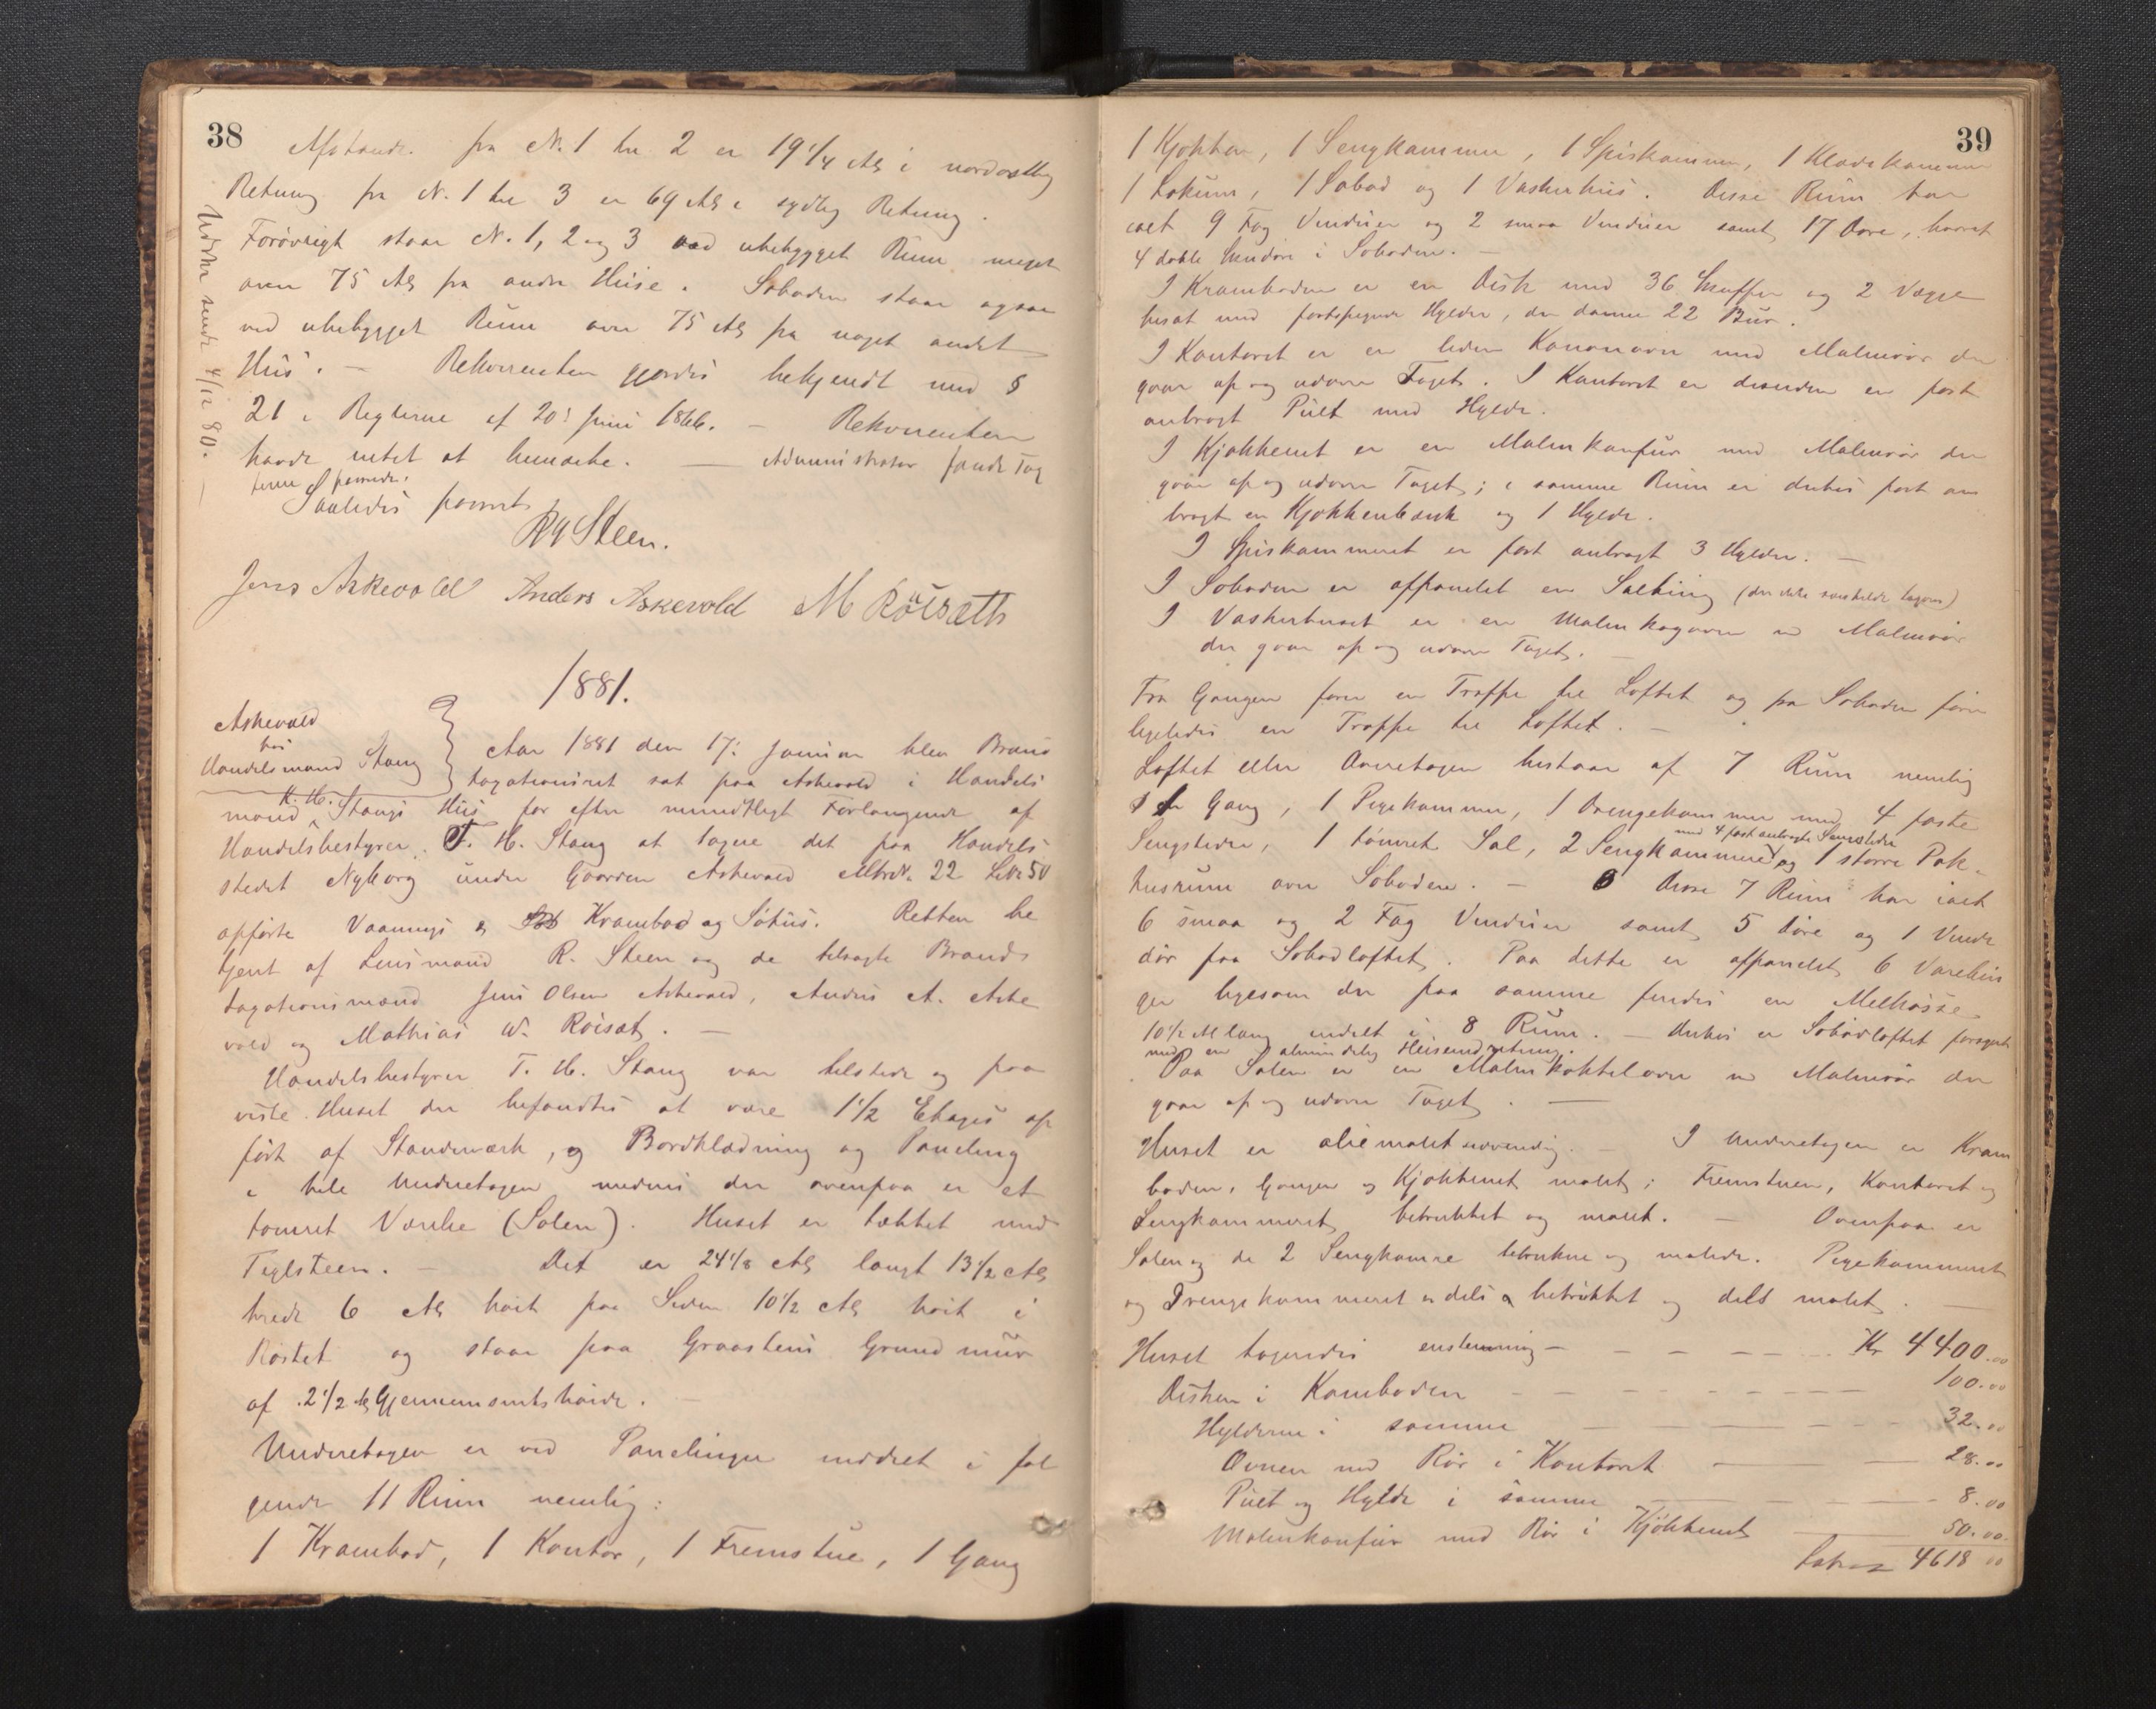 38
Afstande fra N. 1 til 2 er 19 1/4 Al i nordostlig
Retning fra N. 1 til 3 er 69 Al i sydlig Retning.
Forøvrigt staar N. 1, 2 og 3 ved ubebygget Rum meget
over 75 Al fra andre Huse. Søboden staar ogsaa
ved ubebygget Rum over 75 Al fra noget andet
Hus. — Rekvirenten gjordes bekjendt med §
21 i Reglerne af 20de Juni 1866. — Rekvirenten
havde intet at bemærke. — Administrator fandt Tax
terne passende.
Saaledes passeret
R Steen.
Jens Askevold Anders Askevold M Röisæth
Udskr sendt 4/12 80. —
1881.
Askevold
hos
Handelsmand Stang
Aar 1881 den 17: Januar blev Brand
taxationsret sat paa Askevold i Handels
mand K. H. Stangs Hus for efter mundtligt Forlangende af
Handelsbestyrer T. H. Stang at taxere det paa Handels
stedet Nyborg under Gaarden Askevold Mtr N. 22 LNr 50
opførte Vaanings & Krambod og Söhus. Retten be
tjent af Lensmand R. Steen og de tilsagte Brand
taxationsmænd Jens Olsen Askevold, Anders A. Aske
vold og Mathias W. Röisæt. —
Handelsbestyrer T. H. Stang var tilstede og paa
viste Huset der befandtes at være 1 1/2 Etages op
ført af Standværk, og Bordklædning og Paneling
i hele Underetagen medens der ovenpaa er et
tømret Værelse (Salen). Huset er tækket med
Teglsteen. — Det er 24 1/8 Al langt 13 1/2 Al
bredt 6 Al höit paa Siden 10 1/2 Al höit i
Röstet og staar paa Graastens Grundmur
af 2 1/2 Al Gjennemsnitshöide. —
Underetagen er ved Panelinger inddelt i føl
gende 11 Rum nemlig:
1 Krambod, 1 Kontor, 1 Fremstue, 1 Gang
39
1 Kjøkken, 1 Sengkammer, 1 Spiskammer, 1 Klædekammer
1 Lokum, 1 Søbod og 1 Vaskerhus. Disse Rum har
ialt 9 Fag Vinduer og 2 smaa Vinduer samt 17 Døre, hvoraf
4 doble i Søboden. —
I Kramboden er en Disk med 36 Skuffer og 2 Vægge
besat med Hylder, der danne 22 Rum.
I Kontoret er en liden Kanonovn med Malmrör der
gaar op og udover Taget. I Kontoret er desuden en fast
anbragt Pult med Hylde.
I Kjøkkenet er en Malmkomfur med Malmrör der
gaar op og udover Taget; i samme Rum er derhos fast an
bragt en Kjøkkenbænk og 1 Hylde.
I Spiskammeret er fast anbragt 3 Hylder. —
I Søboden er afpanelet en Saltbing (der ikke særskilt taxeres)
I Vaskerhuset er en Malmkogovn m Malmrör
der gaar op og udover Taget. —
Fra Gangen fører en Trappe til Loftet og fra Søboden fører
ligeledes en Trappe til Loftet. —
Loftet eller Overetagen bestaar af 7 Rum nemlig
1 Gang, 1 Pigekammer, 1 Drengekammer med 4 faste
Sengsteder, 1 tømret Sal, 2 Sengkammere med 4 fast anbragte Sengsteder og 1 større Pak
husrum over Søboden. — Disse 7 Rum har ialt
6 smaa og 2 Fag Vinduer samt 5 Döre og 1 Vinde
dör paa Søbodloftet. Paa dette er afpanelet 6 Varebin
ger ligesom der paa samme findes en Melkasse
10 1/2 Al lang inddelt i 8 Rum. — Derhos er Søbodloftet forsynet
med en almindelig Heiseindretning.
Paa Salen er en Malmkakkelovn m Malmrör der
gaar op og udover Taget. —
Huset er oliemalet udvendig. — I Underetagen er Kram
boden, Gangen og Kjøkkenet malet; Fremstuen, Kontoret og
Sengkammeret betrukket og malet. — Ovenpaa er
Salen og de 2 Sengkamre betrukne og malede. Pigekammeret
og Drengekammeret er dels betrukket og dels malet. —
Huset taxeredes enstemmig — Kr 4400.00
Disken i Kramboden — 100.00
Hylderne i samme — 32.00
Ovnen med Rör i Kontoret — 28.00
Pult og Hylde i samme — 8.00
Malmkomfur med Rör i Kjökkenet — 50.00
Latus 4618 00